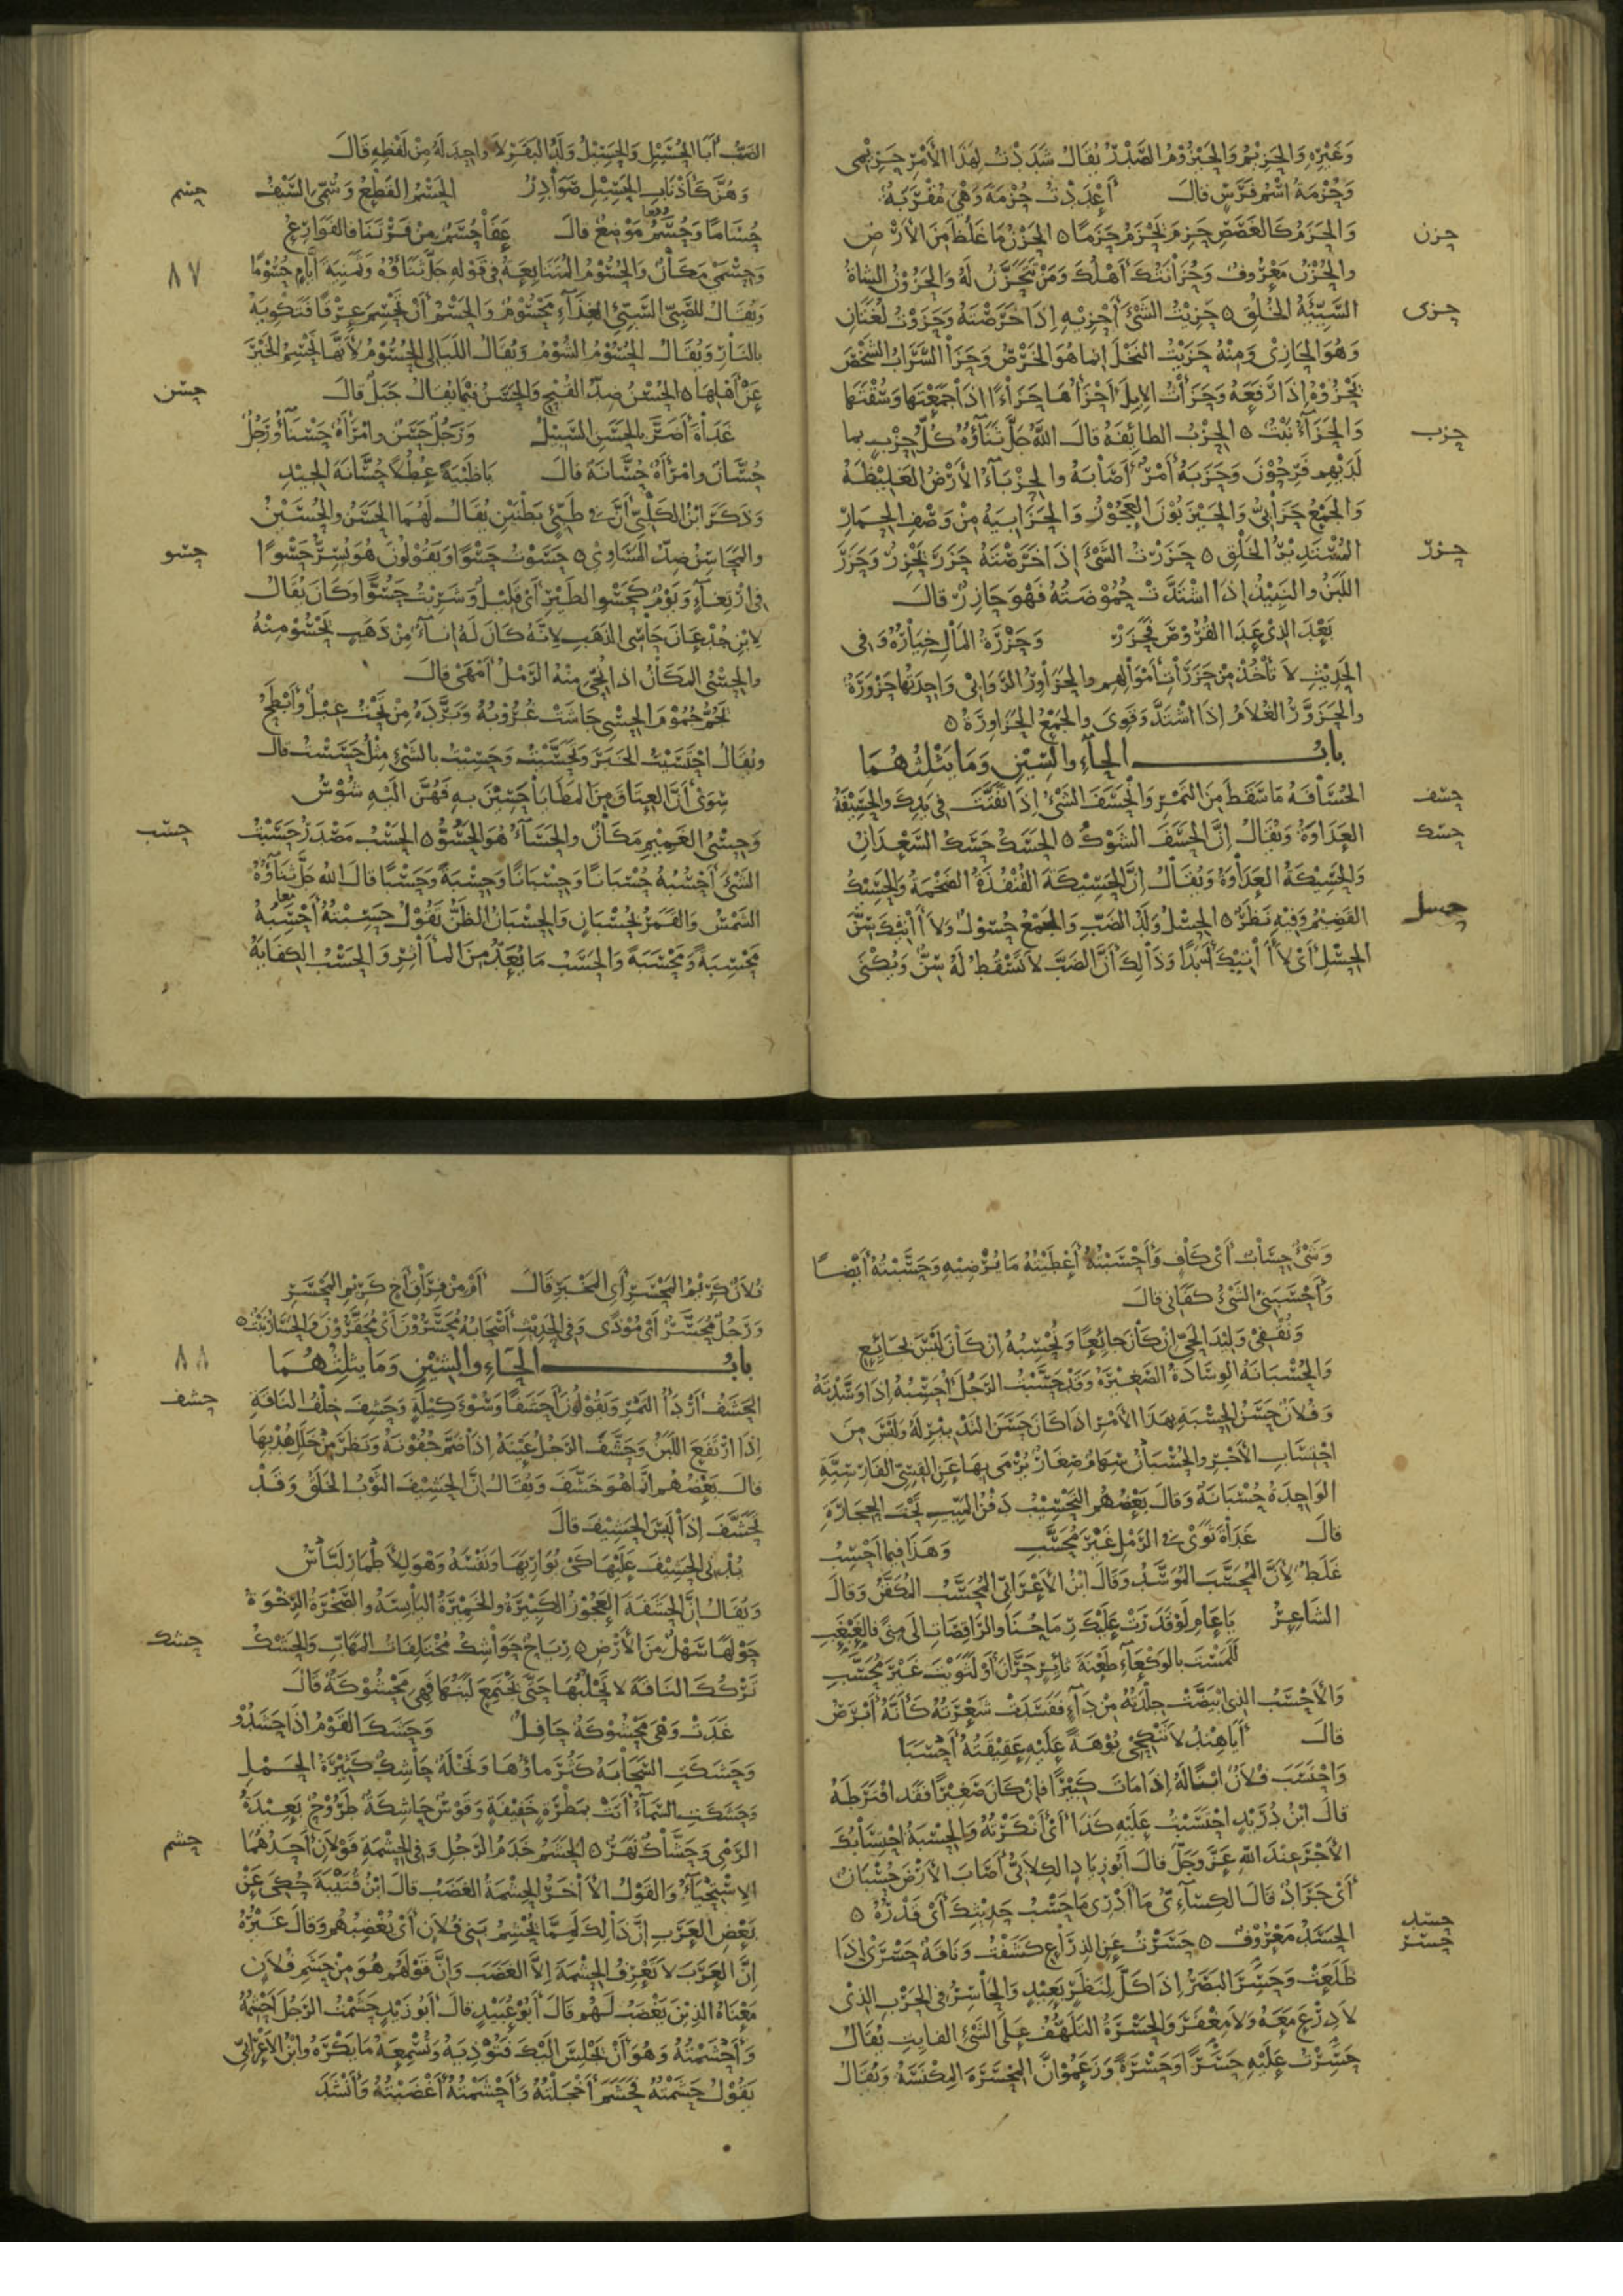 وَغَيْرِهِ وَالحَزِيْمُ وَالحَيْزُوْمُ الصَّدْرُ يُقَالُ شَدَدْتُ لِهٰذَا الأَمْرِ حَزِيْمِى
وَحُزْمَةُ اسْمُ فَرَسٍ قالَ أَعْدَدْتُ حُزْمَةَ وَهْىَ مُقْرَبَةٌ
وَالحَزَمُ كَالغَصَصِ حَزِمَ يَحْزَمُ حَزَمًا ٥ الحَزْنُ مَا غَلُظَ مِنَ الأَرْضِ
حزن
والحُزْنُ مَعْرُوفٌ وَحُزَانَتُكَ أَهْلُكَ وَمَنْ تَتَحَزَّنُ لَهُ وَالحَزُوْنُ الشاةُ
السَّيِّئَةُ الخُلُقِ ٥ حَزَيْتُ الشَّىْءَ أَحْزِيْهِ إِذَا خَرَصْتَهُ وَحَزَوْتُ لُغَتَانِ
حزى
وَهُوَ الحَازِىْ وَمِنْهُ حَزَيْتُ النَخْلَ إِنما هُوَ الخَرْصُ وَحَزَا السَّرَابُ الشَّخْصَ
يَحْزُوْهُ إِذَا رَفَعَهُ وَحَزَأْتُ الإِبِلَ أَحْزَأُهَا حَزْءًا اذَا جَمَعْتَهَا وَسُقْتَهَا
وَالحَزَاءُ نَبْتٌ ٥ الحِزْبُ الطائِفَةُ قالَ اللهُ جَلَّ ثَنَاؤُهُ كُلُّ حِزْبٍ بما
حزب
لَدَيْهِمْ فَرِحُوْنَ وَحَزَبَهُ أَمْرٌ أَصَابَهُ والحِزْبَاءُ الأَرْضُ الغَلِيْظَةُ
وَالجَمِيْعُ حَزَابِىُّ وَالحَيْزَبُوْنَ العَجُوْزُ وَالحَزَابِيَةُ مِنْ وَصْفِ الحِمَارِ
المُسْتَدِيْرُ الخَلْقِ ٥ حَزَرْتُ الشَّىْءَ إِذَا خَرَصْتَهُ حَزَرَ يَحْزِرُ وَحَزَرَ
حزر
اللَّبَنُ والنَبِيْذُ إِذَا اشْتَدَّتْ حُمُوْضَتُهُ فَهْوَ حَازِرٌ قالَ
بَعْدَ الذِىْ عَدَا القُرُوْصَ فَحَزَرْ وَحَزْرَةُ المَالِ خِيَارُهُ وَفى
الحَدِيْثِ لَا تَأْخُذْ مِنْ حَزَرَاتِ أَمْوَالِهِم والحَزَاوِرُ الرَّوَابِىْ وَاحِدَتُهَا حَزْوَرَةٌ
والحَزَوَّرُ الغُلَامُ إِذَا اشْتَدَّ وَقَوِىَ والجَمْعُ الحَزَاوِرَةُ ٥
بابُ الحاءِ والسِّيْنِ وَمَا يَثْلِثُهُمَا
الحُسَافَةُ مَا سَقَطَ مِنَ التَمْرِ وَانْحَسَفَ الشَّىْءُ إِذَا تَفَتَّتَ فى يَدِكَ والحَسِيْفَةُ
حسف
العَدَاوَةُ وَيُقَالُ إِنَّ الحَسَفَ الشَّوْكُ ٥ الحَسَكُ حَسَكُ السَّعْدَانِ
حسك
وَالحَسِيْكَةُ العَدَاوَةُ وَيُقَالُ إِنَّ الحِسِيْكَةَ القُنْفُذَةُ الضَخْمَةُ وَالحَسِيْكُ
القَضِيْمُ وَفِيْهِ نَظَرٌ ٥ الحِسْلُ وَلَدُ الضَبِّ وَالجَمْعُ حُسُوْلٌ وَلَا آتِيْكَ سِنَّ
حسل
الحِسْلِ أَىْ لَا آتِيْكَ أَبَدًا وَذَالِكَ أَنَّ الضَبَّ لَا تَسْقُطُ لَهُ سِنٌّ وَيُكْنَى
الضَبُّ أَبَا الحُسَيْلِ وَالحَسِيْلُ وَلَدُ البَقَرِ لَا وَاحِدَ لَهُ مِنْ لَفْظِهِ قَالَ
وَهُنَّ كَأَذْنَابِ الحَسِيْلِ صَوَادِرُ الحَسْمُ القَطْعُ وَسُمِّىَ السَّيْفُ
حسم
حُسَامًا وَحُسَمُ مَوْضِعٌ قالَ عَفَا حُسَمٌ مِنْ فَرْتَنَا فالفَوَارِعُ
وَحِسْمَى مَكَانٌ والحُسُوْمُ المُتَتَابِعَةُ فى قَوْلِهِ جَلَّ ثَنَاؤُهُ وَثَمٰنِيَةَ أَيَّامٍ حُسُوْمًا
٨٧
وَيُقَالُ للصَّبِىِّ السَّيِّئِ الغِذَاءِ مَحْسُوْمٌ وَالحَسْمُ أَنْ تَحْسِمَ عِرْقًا فَتَكْوِيَهُ
بالنَارِ وَيُقَالُ الحُسُوْمُ الشُوْمُ وَيُقَالُ اللَيَالِى الحُسُوْمُ لِأَنَّهَا تَحْسِمُ الخَيْرَ
عَنْ أَهْلِهَا ٥ الحُسْنُ ضِدُّ القُبْحِ وَالحَسَنُ فِيْمَا يُقَالُ جَبَلٌ قالَ
حسن
غَدَاةَ أَضَرَّ بِالحَسَنِ السَّبِيْلُ وَرَجُلٌ حَسَنٌ وامْرَأَةٌ حَسْنَاءُ وَرَجُلٌ
حُسَّانٌ وامْرَأَةٌ حُسَّانَةٌ قالَ يَا ظَبْيَةً عُطُلًا حُسَّانَةَ الجِيْدِ
وَذَكَرَ ابْنُ الكَلْبِىِّ أَنَّ فى طَيِّئٍ بَطْنَيْنِ يُقَالُ لَهُمَا الحَسَنُ والحُسَيْنُ
والمَحَاسِنُ ضِدُّ المَسَاوِئِ ٥ حَسَوْتُ حَسْوًا وَيَقُوْلُونَ هُوَ يُسِرُّ حَسْوًا
حسو
فى ارْتِغَاءٍ وَيَوْمٌ كَحَسْوِ الطَيْرِ أَىْ قَلِيْلٌ وَشَرِبْتُ حَسُوًّا وَكَانَ يُقَالُ
لِابْنِ جُدْعَانَ حَاسِى الذَهَبِ لِأَنَّهُ كَانَ لَهُ إِنَاءٌ مِنْ ذَهَبٍ يَحْسُوْ مِنْهُ
والحِسْىُ المَكَانُ اذا نُحِّىَ مِنْهُ الرَّمْلُ أَمْهَى قالَ
تَجُمُّ جُمُوْمَ الحِسْىِ جَاشَتْ غُرُوْبُهُ وَبَرَّدَهُ مِنْ تَحْتُ غِيْلٌ وَأَبْطَحُ
ويُقَالُ احْتَسَيْتُ الخَبَرَ وَتَحَسَّيْتُ وَحَسِيْتُ بالشَّىْءِ مِثْلُ حَسِسْتُ قالَ
سِوَى أَنَّ العِتَاقَ مِنَ المَطَايَا حَسِيْنَ بِهِ فَهُنَّ الَيْهِ شُوْسُ
وَحِسْىُ الغَمِيْمِ مَكَانٌ والحَسَاءُ هُوَ الحَسُوُّ ٥ الحَسْبُ مَصْدَرُ حَسَبْتُ
حسب
الشَّىْءَ أَحْسُبُهُ حُسْبَانًا وَحِسْبَانًا وَحِسْبَةً وَحَسْبًا قالَ اللهُ جَلَّ ثَنَاؤُهُ
الشَمْسُ وَالقَمَرُ بِحُسْبَانٍ وَالحِسْبَانُ الظَنُّ تَقُوْلُ حَسِبْتُهُ أَحْسِبُهُ
مَحْسِبَةً وَمَحْسَبَةً وَالحَسَبُ مَا يُعَدُّ مِنَ المَآثِرِ وَالحَسْبُ الكِفَايَةُ
وَشَىْءٌ حِسَابٌ أَىْ كَافٍ وَأَحْسَبْتُهُ أَعْطَيْتُهُ مَا يُرْضِيْهِ وَحَسَّبْتُهُ أَيْضًا
وَأَحْسَبَنِىْ الشَّىْءُ كَفَانِى قالَ
وَنُقْفِىْ وَلِيْدَ الحَىِّ إِنْ كَانَ جَائِعًا وَنُحْسِبُهُ إِنْ كَانَ لَيْسَ بجَائِعِ
وَالحُسْبَانَةُ الوِسَادَةُ الصَغِيْرَةُ وَقَدْ حَسَّبْتُ الرَجُلَ أُحَسِّبُهُ إِذَا وَسَّدْتَهُ
وَفُلَانٌ حَسَنُ الحِسْبَةِ بهٰذَا الأَمْرِ اذَا كَانَ حَسَنَ التَدْبِيْرِ لَهُ وَلَيْسَ مِنَ
احْتِسَابِ الأَجْرِ والحُسْبَانُ سِهَامٌ صِغَارٌ يُرْمَى بِهَا عَنِ القِسِىِّ الفَارِسِيَّةِ
الوَاحِدَةُ حُسْبَانَةٌ وَقَالَ بَعْضُهُم التَحْسِيْبُ دَفْنُ المَيِّتِ تَحْتَ الحِجَارَةِ
قالَ غَدَاةَ ثَوَىْ فى الرَمْلِ غَيْرَ مُحَسَّبِ وَهٰذَا فِيمَا أَحْسِبُ
غَلَطٌ لِأَنَّ المُحَسَّبَ المُوَسَّدُ وَقَالَ ابْنُ الأَعْرَابِىِّ المُحَسَّبُ المُكَفَّنُ وَقَالَ
الشَاعِرُ يَا عَامِ لَوْ قَدَرَتْ عَلَيْكَ رِمَاحُنَا والرَّاقِصَاتِ الَى مِنًى فَالغَبْغَبِ
لَلَمَسْتَ بِالوَكْعَاءِ طَعْنَةَ ثَائِرٍ حَرَّانَ أَوْ لَثَوَيْتَ غَيْرَ مُحَسَّبِ
وَالأَحْسَبُ الذِى ابْيَضَّتْ جِلْدَتُهُ مِنْ دَاءٍ فَفَسَدَتْ شَعْرَتُهُ كَأَنَّهُ أَبْرَصُ
قالَ أَيَا هِنْدُ لَا تَنْكِحِىْ بُوْهَةً عَلَيْهِ عَقِيْقَتُهُ أَحْسَبَا
وَاحْتَسَبَ فُلَانٌ ابْنًا لَهُ إِذَا مَاتَ كَبِيْرًا فَإِنْ كَانَ صَغِيْرًا فَقَدِ افْتَرَطَهُ
قالَ ابْنُ دُرَيْدٍ احْتَسَبْتُ عَلَيْهِ كَذَا أَىْ أَنْكَرْتُهُ وَالحِسْبَةُ احْتِسَابُكَ
الأَجْرَ عِنْدَ اللهِ عَزَّ وَجَلَّ قالَ أَبُو زِيَادٍ الكِلَابِىُّ أَصَابَ الأَرْضَ حُسْبَانٌ
أَىْ جَرَادٌ قَالَ الكِسَاءِىُّ مَا أَدْرِى مَا حَسْبُ حَدِيْثِكَ أَىْ قَدْرُهُ ٥
الحَسَدُ مَعْرُوْفٌ ٥ حَسَرْتُ عَنِ الذِرَاعِ كَشَفْتُ وَنَاقَةٌ حَسْرَىٰ إِذَا
حسد
حسر
ظَلَعَتْ وَحَسِرَ البَصَرُ إِذَا كَلَّ لِنَظَرٍ بَعِيْدٍ وَالحَاسِرُ فى الحَرْبِ الذِىْ
لَا دِرْعَ مَعَهُ وَلَا مِغْفَرَ وَالحَسْرَةُ التَلَهُّفُ عَلَى الشَّىْءِ الفَايِتِ يُقَالُ
حَسِرْتُ عَلَيْهِ حَسَرًا وَحَسْرَةً وَزَعَمُوْا أَنَّ المِحْسَرَةَ المِكْنَسَةُ وَيُقَالُ
فُلَانٌ كَرِيْمُ المَحْسَرِ أَىِ المَخْبَرِ قَالَ أَمْ مِنْ فِرَاقِ أَخٍ كَرِيْمِ المَحْسَرِ
وَرَجُلٌ مُحَسَّرٌ أَىْ مُوْذًى وَفى الحَدِيْثِ أَصْحَابُهُ مُحَسَّرُوْنَ أَىْ مُحَقَّرُوْنَ وَالحَسَارُ نَبْتٌ ٥
بابُ الحَاءِ والشِيْنِ وَمَا يثلِثُهُمَا
٨٨
الحَشَفُ أَرْدَأُ التَمْرِ وَيَقُوْلُوْنَ أَحَشَفًا وَسُوْءَ كِيْلَةٍ وَحَشِفَ خِلْفُ النَاقَةِ
حشف
إِذَا ارْتَفَعَ اللَّبَنُ وَحَشَّفَ الرَجُلُ عَيْنَهُ إِذَا ضَمَّ جُفُوْنَهُ وَنَظَرَ مِنْ خَلَلِ هُدْبِهَا
قالَ بَعْضُهُم إِنَّمَا هُوَ خَشَّفَ وَيُقَالُ إِنَّ الحَشِيْفَ الثَوْبُ الخَلَقُ وَقَدْ
تَحَشَّفَ إِذَا لَبِسَ الحَشِيْفَ قالَ
يُدْنِى الحَشِيْفَ عَلَيْهَا كَىْ يُوَارِيَهَا وَنَفْسَهُ وَهْوَ لِلْأَطْمَارِ لَبَّاسُ
وَيُقَالُ إِنَّ الحَشَفَةَ العَجُوْزُ الكَبِيْرَةُ والخَمِيْرَةُ اليَابِسَةُ والصَّخْرَةُ الرِّخْوَةُ
حَوْلَهَا سَهْلٌ مِنَ الأَرْضِ ٥ رِيَاحٌ حَوَاشِكُ مُخْتَلِفَاتُ المَهَابِّ وَالحَشْكُ
حشك
تَرْكُكَ النَاقَةَ لَا تَحْلُبُهَا حَتّٰى يَجْتَمِعَ لَبَنُهَا فَهِىَ مَحْشُوْكَةٌ قَالَ
غَدَتْ وَهْىَ مَحْشُوْكَةٌ حَافِلٌ وَحَشَكَ القَوْمُ اذَا حَشَدُوْا
وَحَشَكَتِ السَّحَابَةُ كَثُرَ مَاؤُهَا وَنَخْلَةٌ حَاشِكٌ كَثِيْرَةُ الحَمْلِ
وَحَشَكَتِ السَّمَاءُ أَتَتْ بِمَطْرَةٍ خَفِيْفَةٍ وَقَوْسٌ حَاشِكَةٌ طَرُوْحٌ بَعِيْدَةُ
الرَّمْىِ وَحَشَّاكٌ نَهَرٌ ٥ الحَشَمُ خَدَمُ الرَجُلِ وَفى الحِشْمَةِ قَوْلَانِ أَحَدُهُمَا
حشم
الِاسْتِحْيَاءُ وَالقَوْلُ الآخَرُ الحِشْمَةُ الغَضَبُ قالَ ابْنُ قُتَيْبَةَ حُكِىَ عَنْ
بَعْضِ العَرَبِ إِنَّ ذَالِكَ لَمِمَّا يُحْشِمُ بَنِىْ فُلَانٍ أَىْ يُغْضِبُهُمْ وَقَالَ غَيْرُهُ
إِنَّ العَرَبَ لَا تَعْرِفُ الحِشْمَةَ إِلَّا الغَضَبَ وَإِنَّ قَوْلَهُمْ هُوَ مِنْ حَشَمِ فُلَانٍ
مَعْنَاهُ الذِيْنَ يَغْضَبُ لَهُمْ قَالَ أَبُوْ عُبَيْدٍ قالَ أَبُوْ زَيْدٍ حَشَمْتُ الرَجُلَ أَحْشِمُهُ
وَأَحْشَمْتُهُ وَهُوَ أَنْ يَجْلِسَ الَيْكَ فَتُؤْذِيَهُ وَتُسْمِعَهُ مَا يَكْرَهُ وابْنُ الأَعْرَابِىِّ
يَقُوْلُ حَشَمْتُهُ فَحَشَمَ أَخْجَلْتُهُ وَأَحْشَمْتُهُ أَغْضَبْتُهُ وَأَنْشَدَ